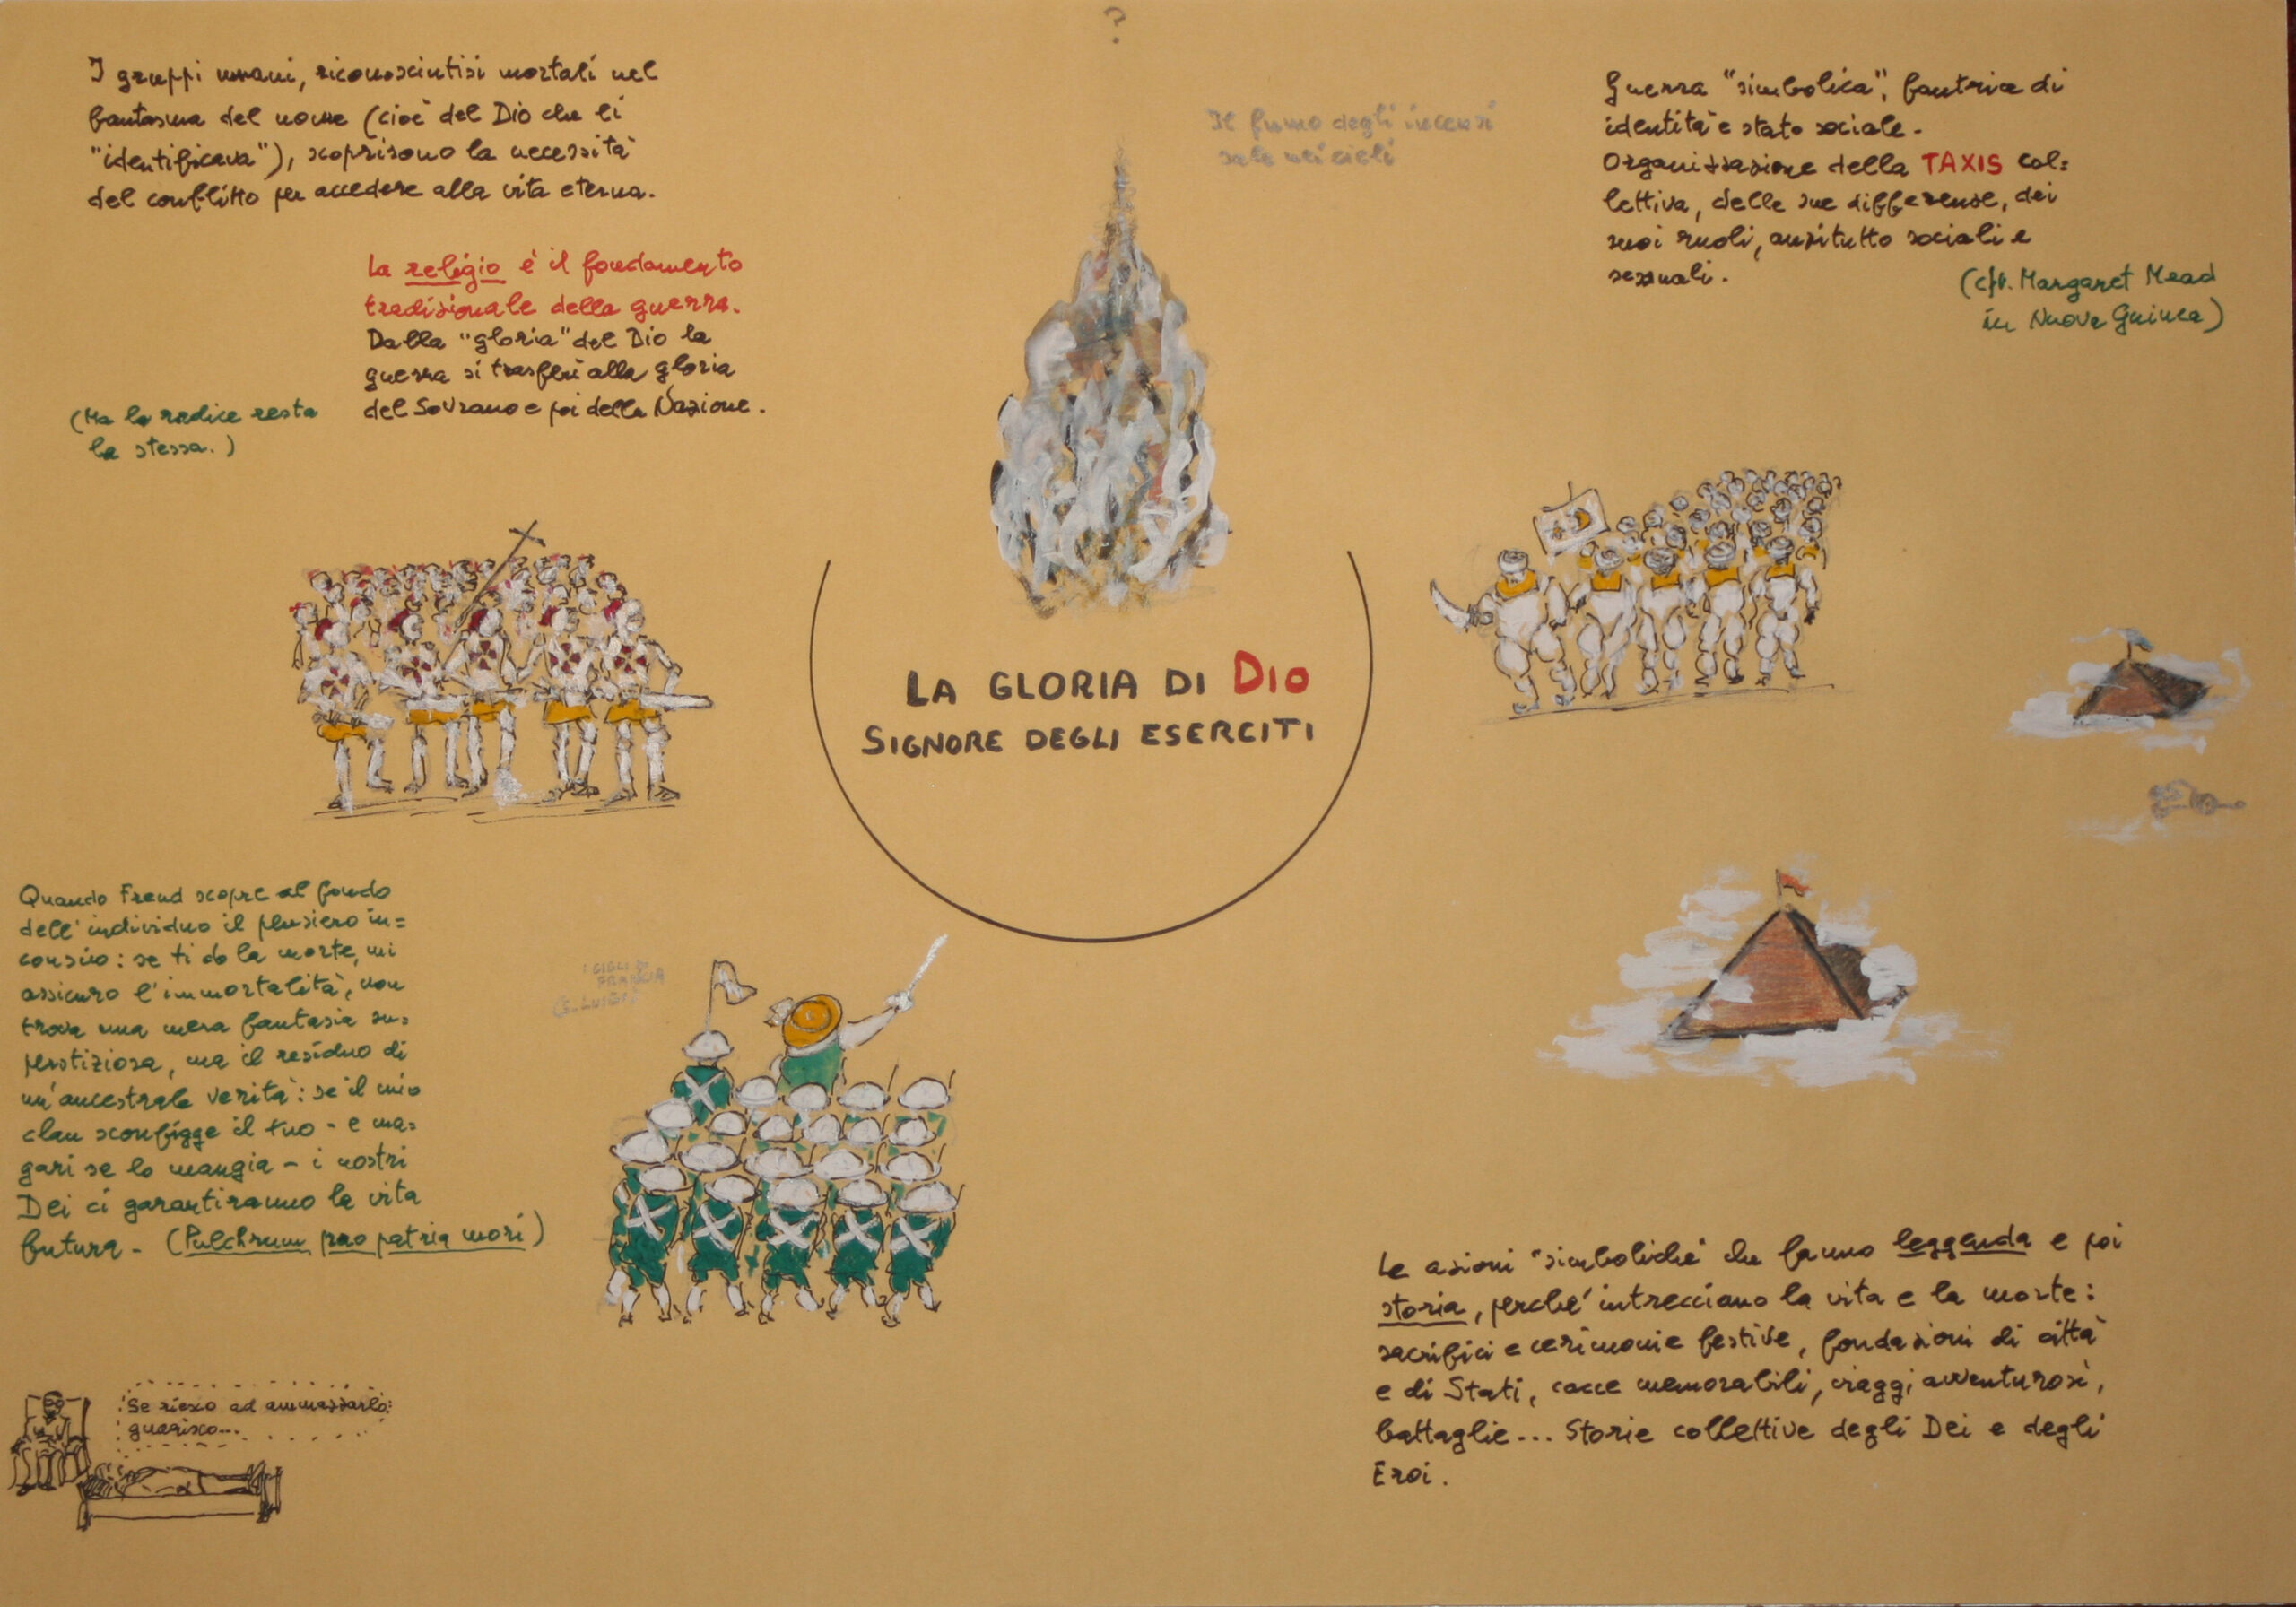 ?
I gruppi umani, riconosciutisi mortali nel
fantasma del nome (cioè del Dio che li
"identificava"), scoprirono la necessità
del conflitto per accedere alla vita eterna.
La religio è il fondamento
tradizionale della guerra.
Dalla "gloria" del Dio la
guerra si trasferì alla gloria
del Sovrano e poi della Nazione.
(Ma la radice resta
la stessa.)
Il fumo degli incensi
sale nei cieli
Guerra "simbolica", fautrice di
identità e stato sociale.
Organizzazione della TAXIS col=
lettiva, delle sue differenze, dei
suoi ruoli, anzitutto sociali e
sessuali.
(cfr. Margaret Mead
in Nuova Guinea)
LA GLORIA DI DIO
SIGNORE DEGLI ESERCITI
Quando Freud scopre al fondo
dell'individuo il pensiero in=
conscio: se ti do la morte, mi
assicuro l'immortalità, non
trova una mera fantasia su=
perstiziosa, ma il residuo di
un'ancestrale verità: se il mio
clan sconfigge il tuo - e ma=
gari se lo mangia - i nostri
Dei ci garantiranno la vita
futura - (Pulchrum pro patria mori)
I GIGLI DI
FRANCIA
(S. LUIGI)
Se riesco ad ammazzarlo:
guarisco...
Le azioni "simboliche" che fanno leggenda e poi
storia, perché intrecciano la vita e la morte:
sacrifici e cerimonie festive, fondazioni di città
e di Stati, cacce memorabili, viaggi avventurosi,
battaglie... Storie collettive degli Dei e degli
Eroi.